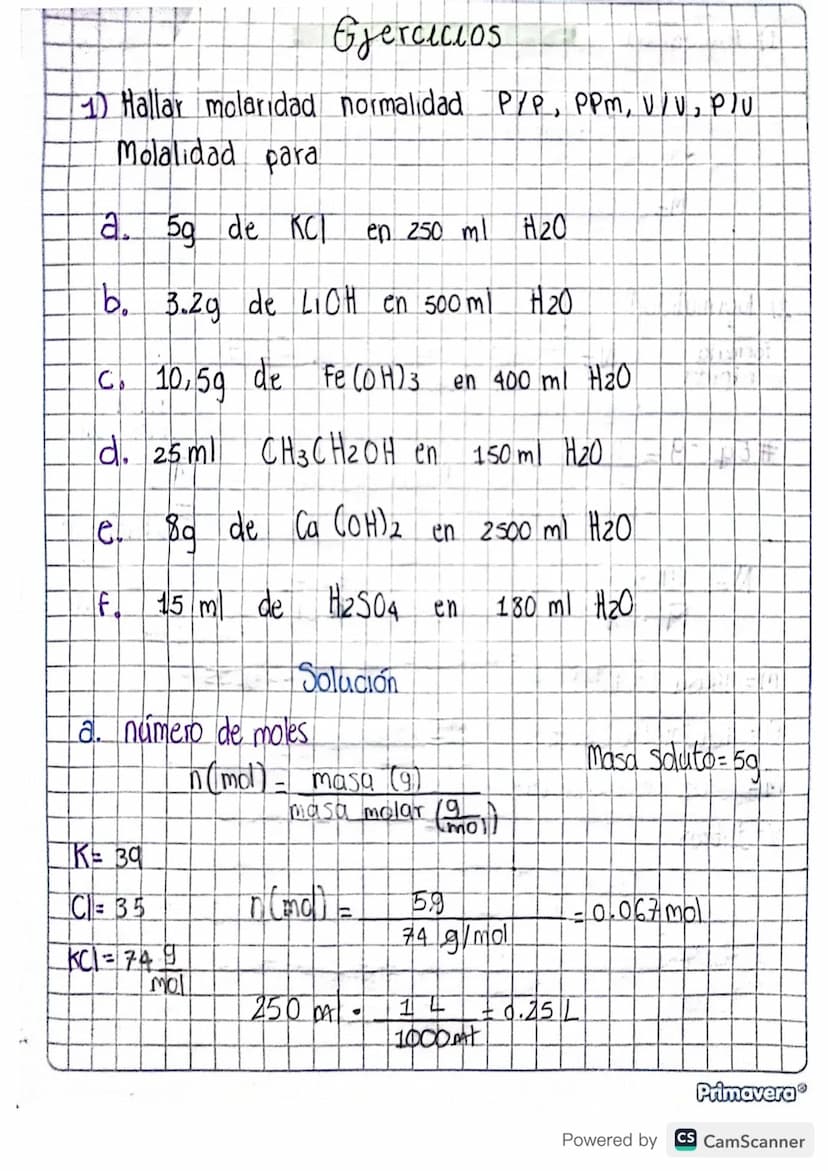 Ejercicios
1) Hallar molaridad normalidad P/P, PPm, V/V, P/V
Molalidad para
a. 5g de KCl en 250 ml H2O
b. 3.2g de LiOH en 500ml H2O
c. 10,5g de Fe(OH)3 en 400 ml H2O
d. 25ml CH3CH2OH en 150ml H2O
e. 8g de Ca(OH)2 en 2500 ml H2O
f. 15 ml de H2SO4 en 180 ml H2O
Solución
a. número de moles
Masa soluto = 5g
n(mol) = masa (g)
masa molar (g/mol)
K= 39
Cl= 35
n(mol) = 5g
74 g/mol
= 0.067 mol
KCl = 74 g
mol
250 ml • 1 L = 0.25 L
1000 ml
Primavera®
Powered by CS CamScanner